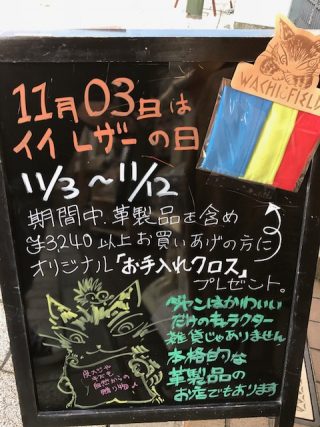 WACHIFIELD
11月03日は
イイレザーの日
11/3〜11/12
期間中、革製品を含め
¥3240以上お買いあげの方に
オリジナル「お手入れクロス」
プレゼント。
ダヤンはかわいい
だけのキャラクター
雑貨じゃありません
本格的な
革製品の
お店でもあります